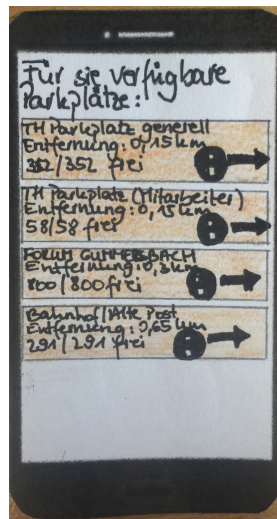 Für sie verfügbare
Parkplätze:
TH Parkplatz generell
Entfernung: 0,15km
352/352 frei
TH Parkplatz (Mitarbeiter)
Entfernung: 0,15km
58/58 frei
FORUM GUMMERSBACH
Entfernung: 0,3km
800/800 frei
Bahnhof/Alte Post
Entfernung: 0,65km
291/291 frei